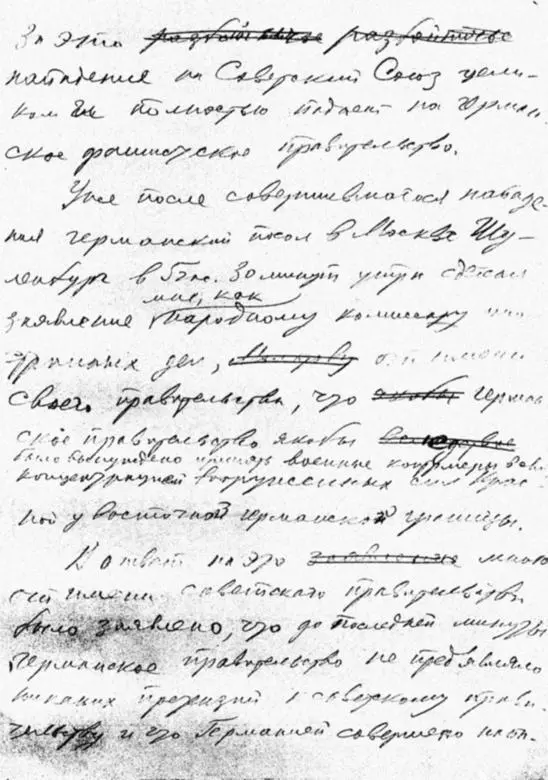 За это разбойничье разбойничье
нападение на Советский Союз цели-
ком и полностью падает на герман-
ское фашистское правительство.
Уже после совершившегося нападе-
ния германский посол в Москве Шу-
ленбург в 5 час. 30 минут утра сделал
мне, как
заявление народному комиссару ино-
странных дел, Молотову от имени
своего правительства, что якобы Герман-
ское правительство якобы
было вынуждено принять военные контрмеры в связи
концентрацией вооруженных сил Крас
ной у восточной германской границы.
В ответ на это заявление мною
от имени советского правительства
было заявлено, что до последней минуты
германское правительство не предъявляло
никаких претензий к советскому прави-
тельству и что Германией совершено нап-